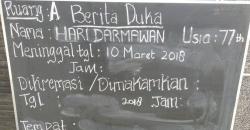 Ruang: A Berita Duka
Nama: HARI DARMAWAN Usia: 77th
Meninggal tgl: 10 Maret 2018
Jam:
Dikremasi / Dimakamkan:
Tgl : 2018 Jam:
Tempat: